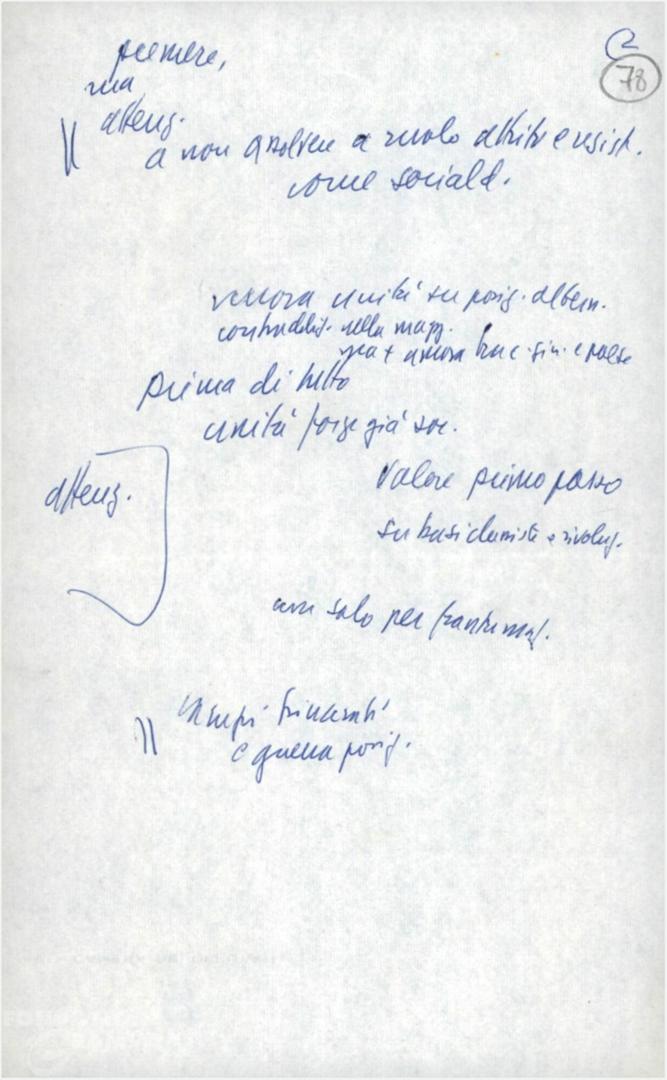 78
premere,
ma
attenz.
a non assolvere a ruolo attrito e resist.
come sociald.
ancora unità su posiz. altern.
contraddiz. nella magg.
ancora tra c. sin. e paese
prima di tutto
unità forze già soc.
attenz.
valore primo passo
su basi classiste e rivoluz.
non solo per frantumaz.
trincerati
e guerra posiz.